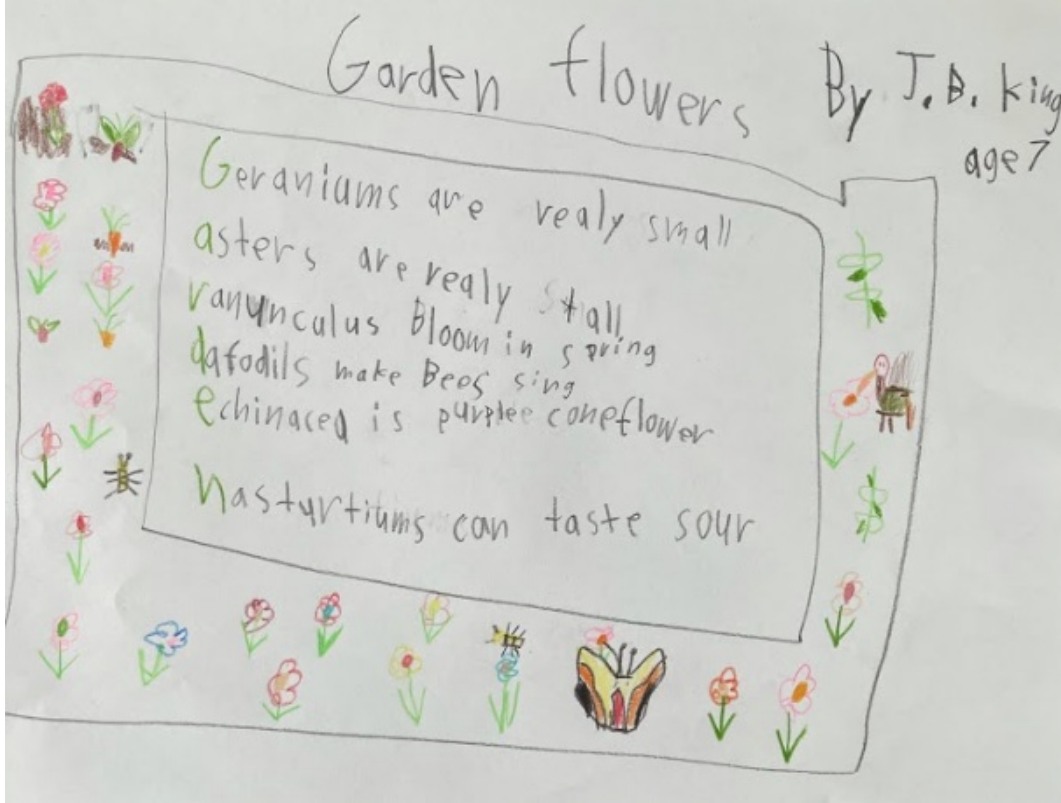 Garden flowers
By J.B. King
age 7
Geraniums are realy small
asters are realy tall
ranunculus Bloom in spring
dafodils make Bees sing
echinacea is purple coneflower
nasturtiums can taste sour